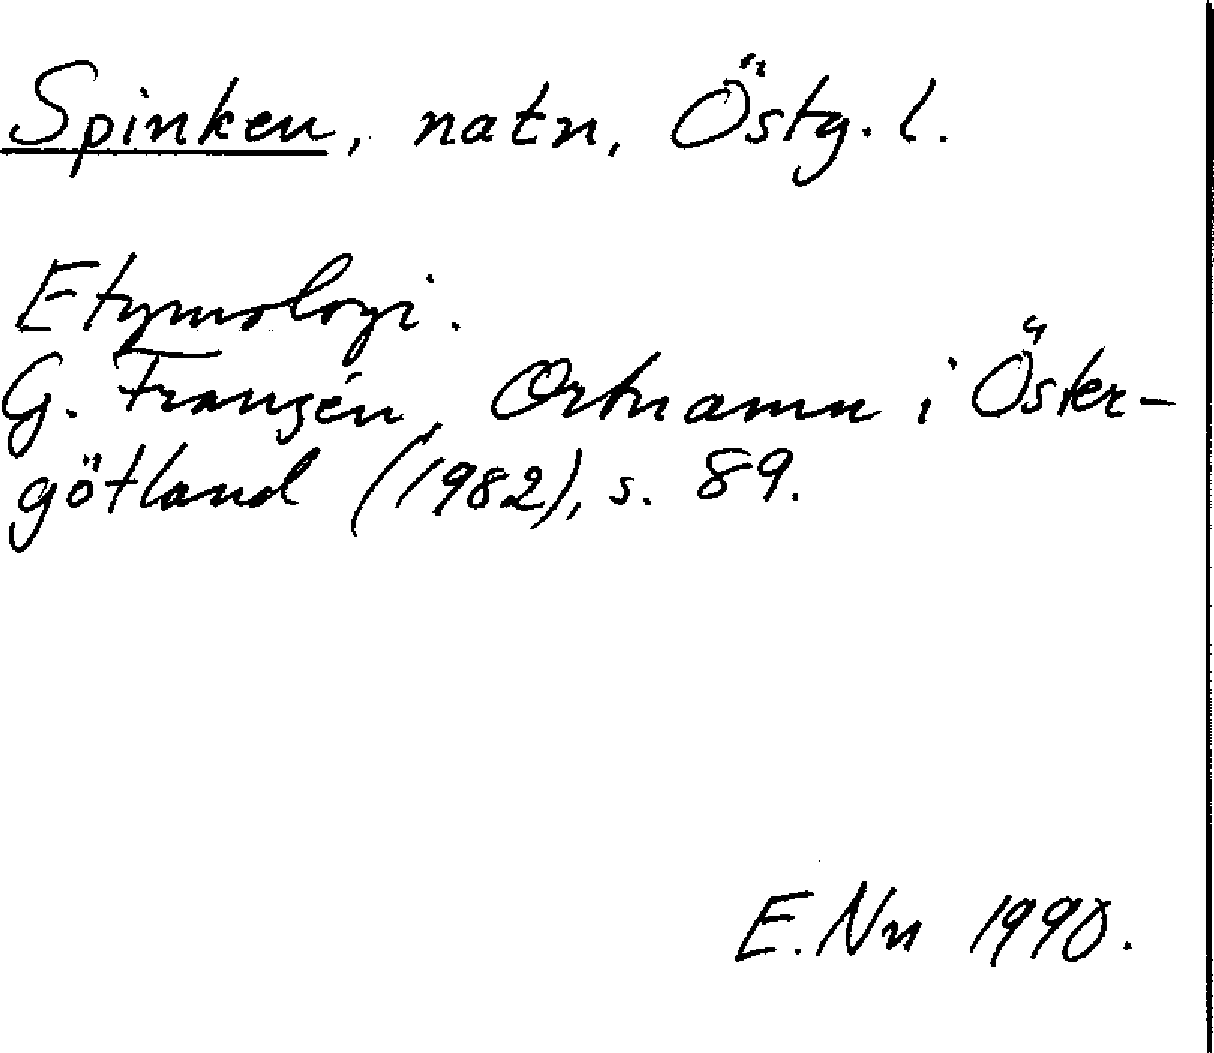 Spinken, natn, Östg. l.
Etymologi.
G. Franzén, Ortnamn i Öster-
götland (1982), s. 89.
E. Nn 1990.